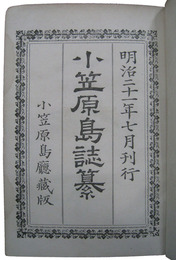 明治二十一年七月刊行
小笠原島誌纂
小笠原島廳藏版